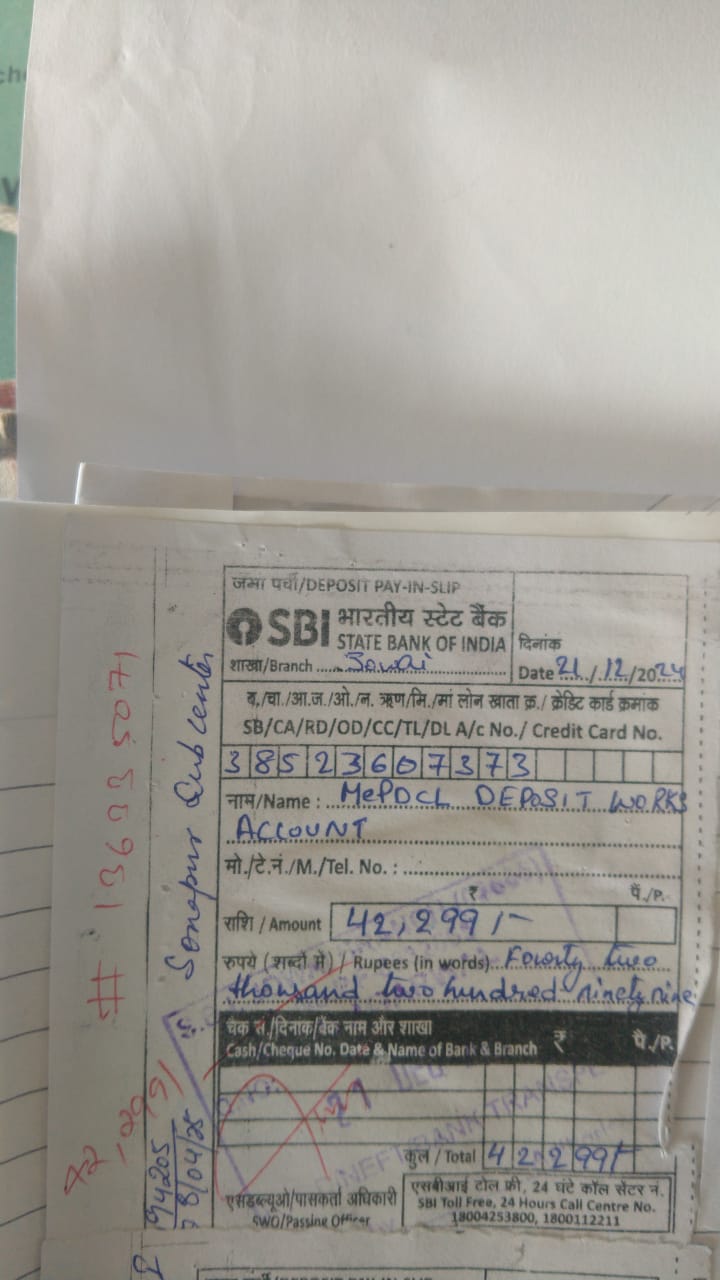 जमा पर्ची/DEPOSIT PAY-IN-SLIP
SBI भारतीय स्टेट बैंक
STATE BANK OF INDIA
दिनांक
शाखा/Branch ..... Jowai
Date 21/12/2024
ब./चा./आ.ज./ओ./न. ऋण/मि./मां लोन खाता क्र./ क्रेडिट कार्ड क्रमांक
SB/CA/RD/OD/CC/TL/DL A/c No./ Credit Card No.
38523607373
नाम/Name : MePDCL DEPOSIT WORKS
ACCOUNT
मो./टे.नं./M./Tel. No. :
₹ पै./P.
राशि / Amount 42,299/-
रुपये (शब्दों में) / Rupees (in words) Fourty two
thousand two hundred ninety nine
चैक सं./दिनांक/बैंक नाम और शाखा
Cash/Cheque No. Date & Name of Bank & Branch ₹ पै./P.
कुल / Total 42299/-
एसडब्ल्यूओ/पासकर्ता अधिकारी
SWO/Passing Officer
एसबीआई टोल फ्री, 24 घंटे कॉल सेंटर नं.
SBI Toll Free, 24 Hours Call Centre No.
18004253800, 1800112211
Sonapur Subcenter
# 136935071
42,299/
194205
8/04/25